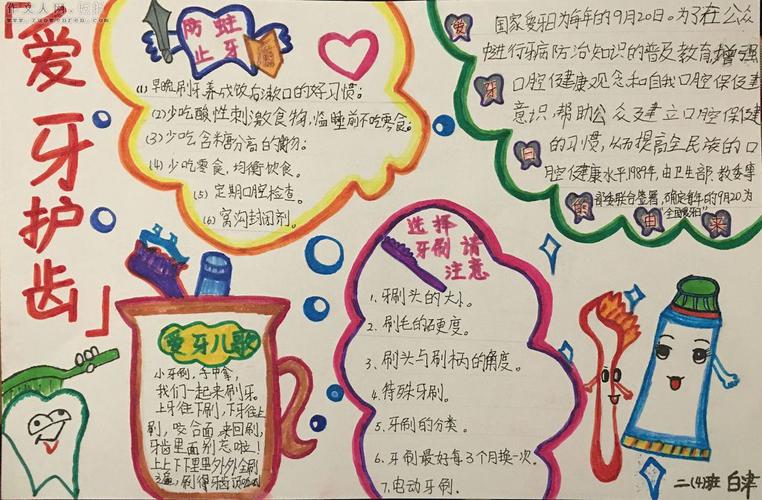 作文人网·投稿
www.zuowenren.com
「爱牙护齿」
防蛀
止牙
(1) 早晚刷牙养成饭后漱口的好习惯。
(2) 少吃酸性刺激食物，临睡前不吃零食。
(3) 少吃含糖分高的食物。
(4) 少吃零食，均衡饮食。
(5) 定期口腔检查。
(6) 窝沟封闭剂。
爱牙日的由来
国家爱牙日为每年的9月20日。为了在公众
中进行牙病防治知识的普及教育，增强
口腔健康观念和自我口腔保健
意识，帮助公众建立口腔保健
的习惯，从而提高全民族的口
腔健康水平1989年，由卫生部、教委等
部委联合签署，确定每年的9月20为
"全国爱牙日"
选择
牙刷请
注意
1、牙刷头的大小。
2、刷毛的硬度。
3、刷头与刷柄的角度。
4、特殊牙刷。
5、牙刷的分类。
6、牙刷最好每3个月换一次。
7、电动牙刷.
爱牙儿歌
小牙刷，手中拿，
我们一起来刷牙。
上牙往下刷，下牙往上
刷，咬合面，来回刷，
牙齿里面别忘啦！
上上下下里里外外全刷
遍，刷得牙齿
二(4)班 白津